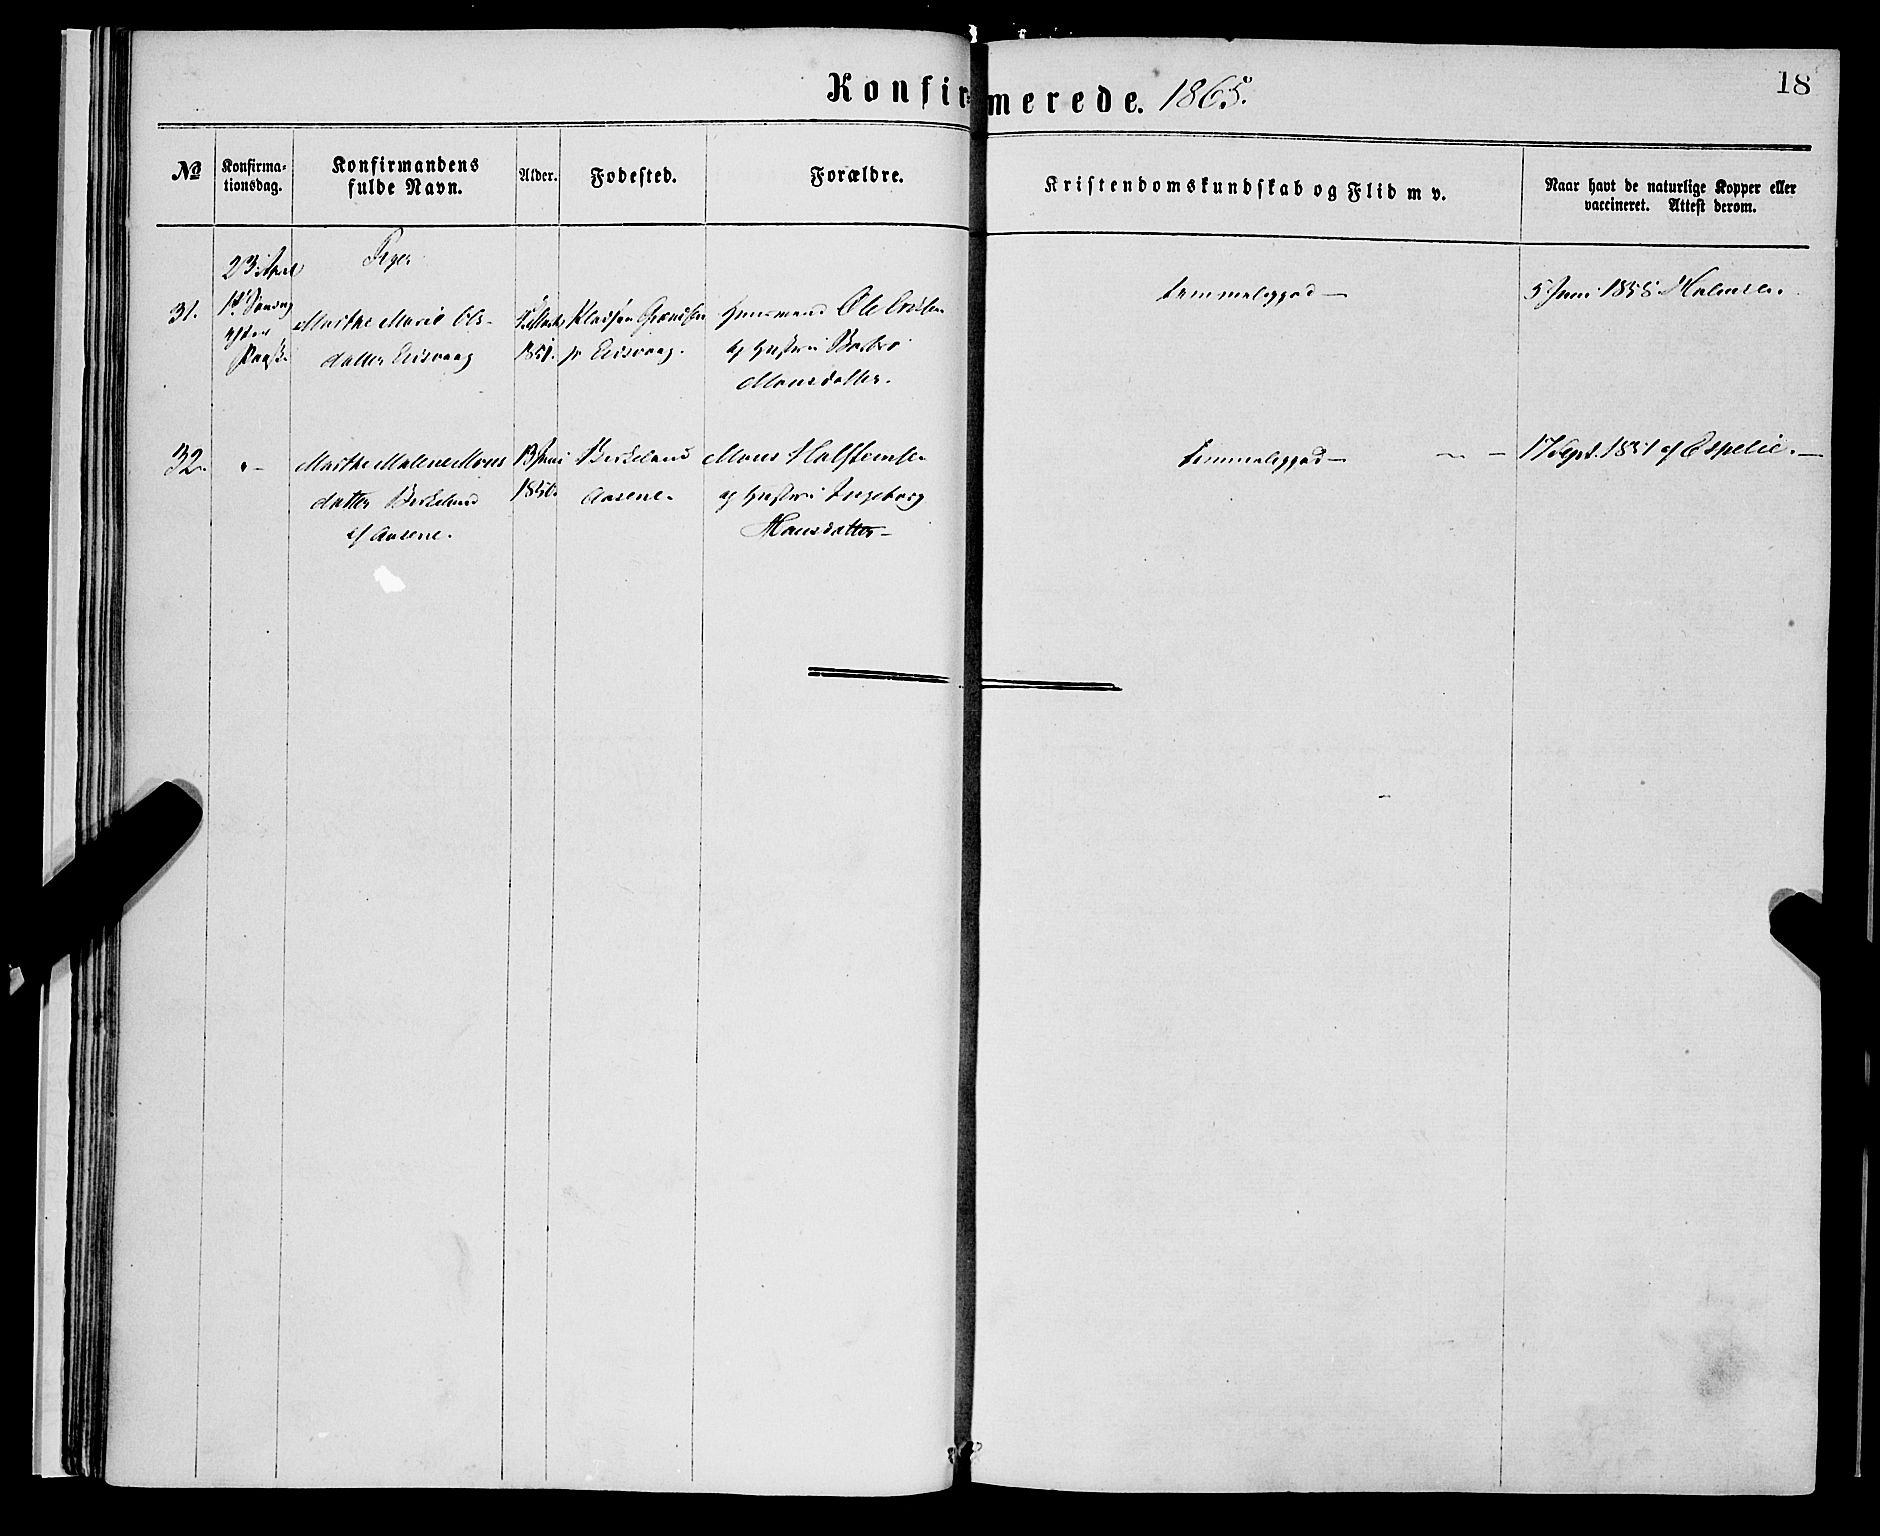 Konfirmerede. 1865.
18
No
Konfirma-
tionsdag.
Konfirmandens
fulde Navn.
Alder.
Fødested.
Forældre.
Kristendomskundskab og Flid m v.
Naar havt de naturlige Kopper eller
vaccineret. Attest derom.
23 April
Piger
31.
1st Søndag
efter
Paaske
Marthe Marie Ols-
datter Eidsvaag
Marts
1851.
Eidsvaag.
Huusmand Ole
og Hustru Barbro
Monsdatter.
temmeliggod —
5 Juni 1855 Holmsen.
32.
"-
Marthe Malene Mons
datter Birkeland
af Aasene.
13 Juni
1850.
Birkeland
Aasene.
Mons Halsteinsen
og Hustru Ingeborg
Monsdatter —
temmeliggod —
17 Sept. 1851 af Espelie. —